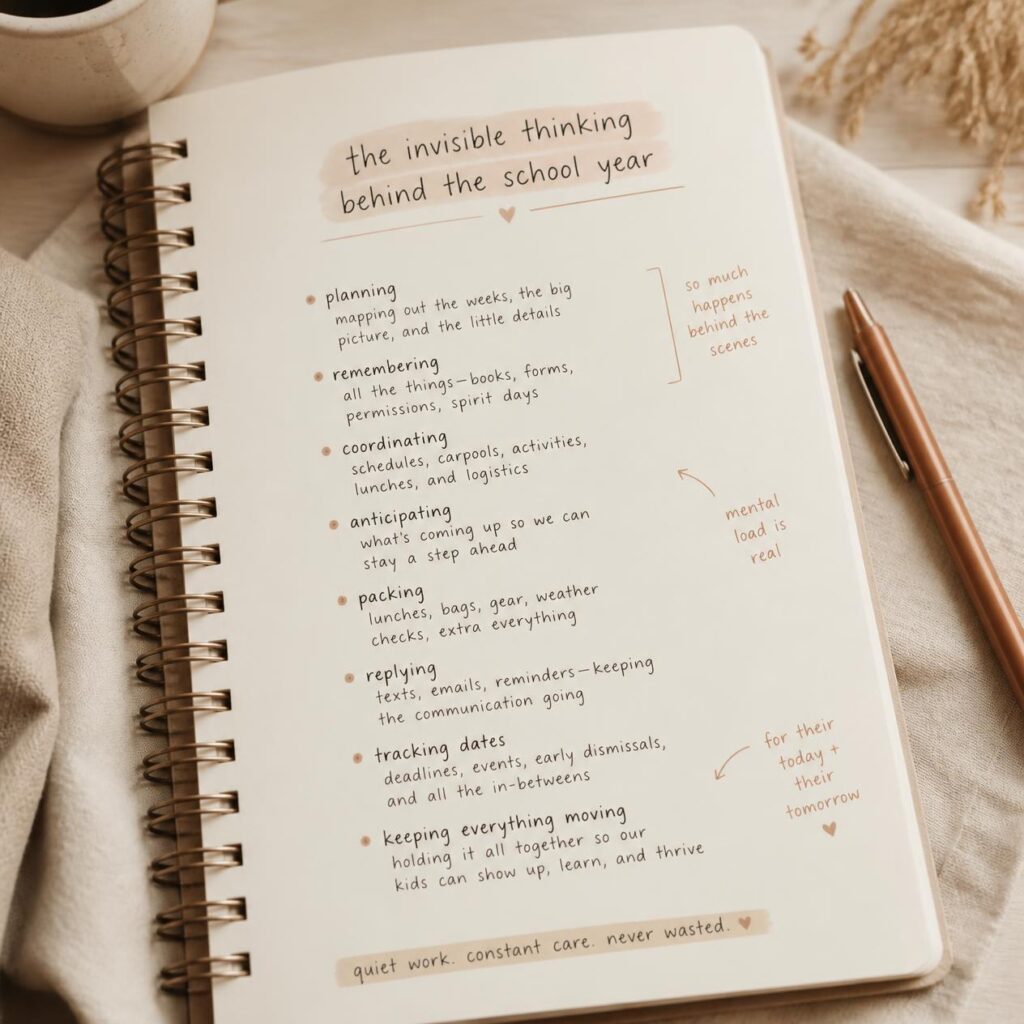 the invisible thinking
behind the school year
planning
mapping out the weeks, the big
picture, and the little details
remembering
all the things—books, forms,
permissions, spirit days
coordinating
schedules, carpools, activities,
lunches, and logistics
anticipating
what's coming up so we can
stay a step ahead
packing
lunches, bags, gear, weather
checks, extra everything
replying
texts, emails, reminders—keeping
the communication going
tracking dates
deadlines, events, early dismissals,
and all the in-betweens
keeping everything moving
holding it all together so our
kids can show up, learn, and thrive
so much
happens
behind the
scenes
mental
load is
real
for their
today +
their
tomorrow
quiet work. constant care. never wasted.